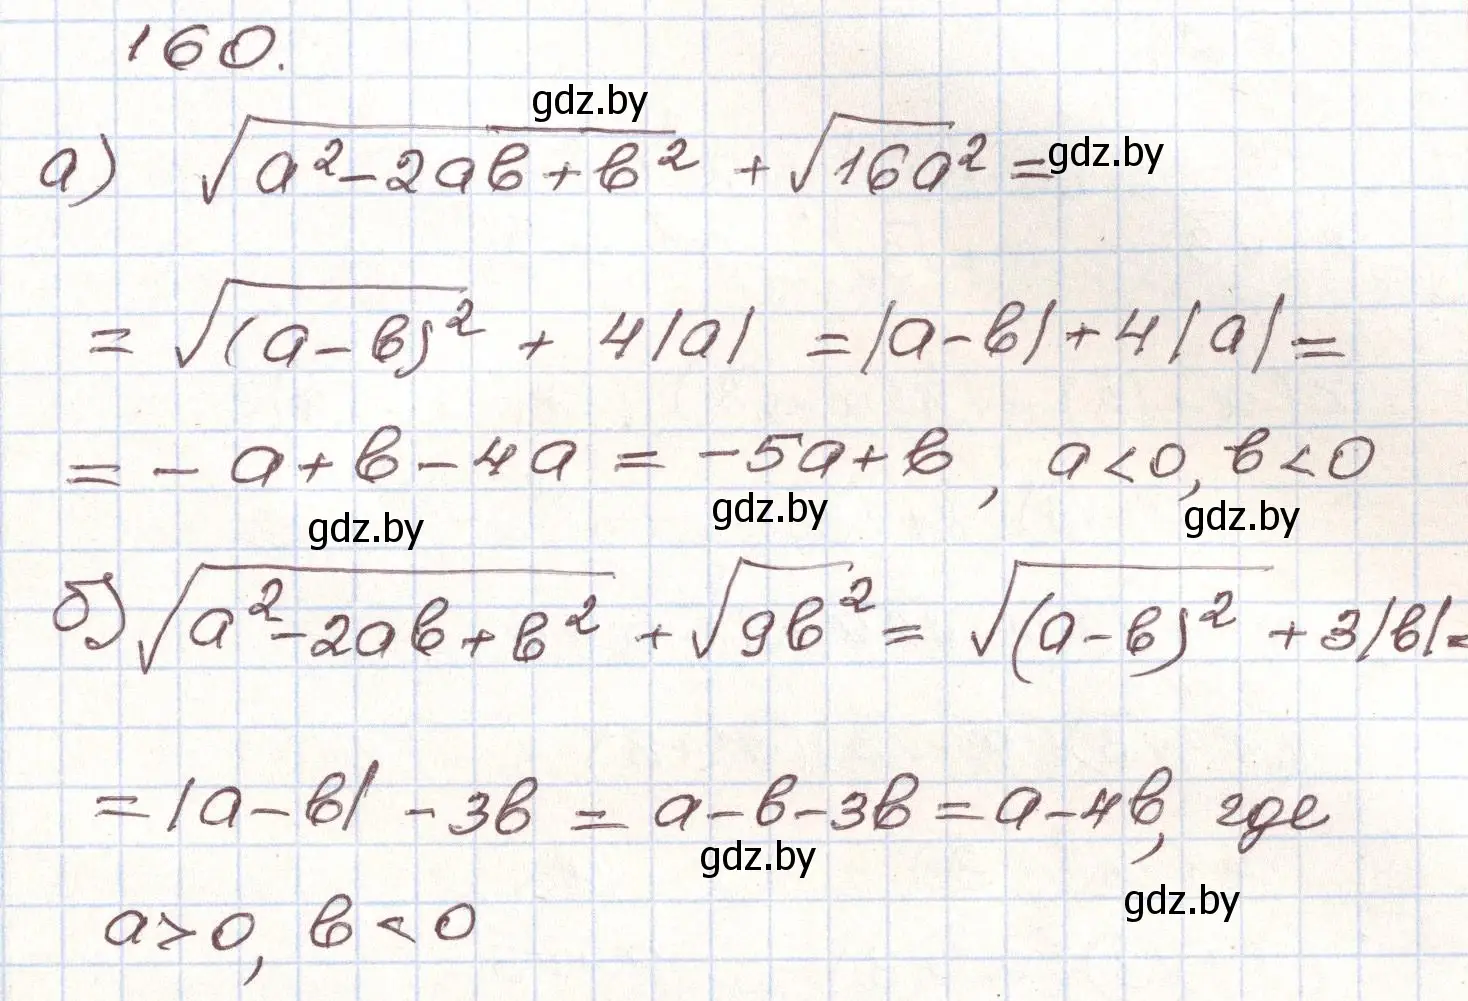 160.
gdz.by
а) √(a² - 2ab + b²) + √(16a²) =
gdz.by
= √((a - b)²) + 4|a| = |a - b| + 4|a| =
= - a + b - 4a = - 5a + b, a < 0, b < 0
gdz.by gdz.by gdz.by
б) √(a² - 2ab + b²) + √(9b²) = √((a - b)²) + 3|b| =
= |a - b| - 3b = a - b - 3b = a - 4b, где
gdz.by gdz.by
a > 0, b < 0